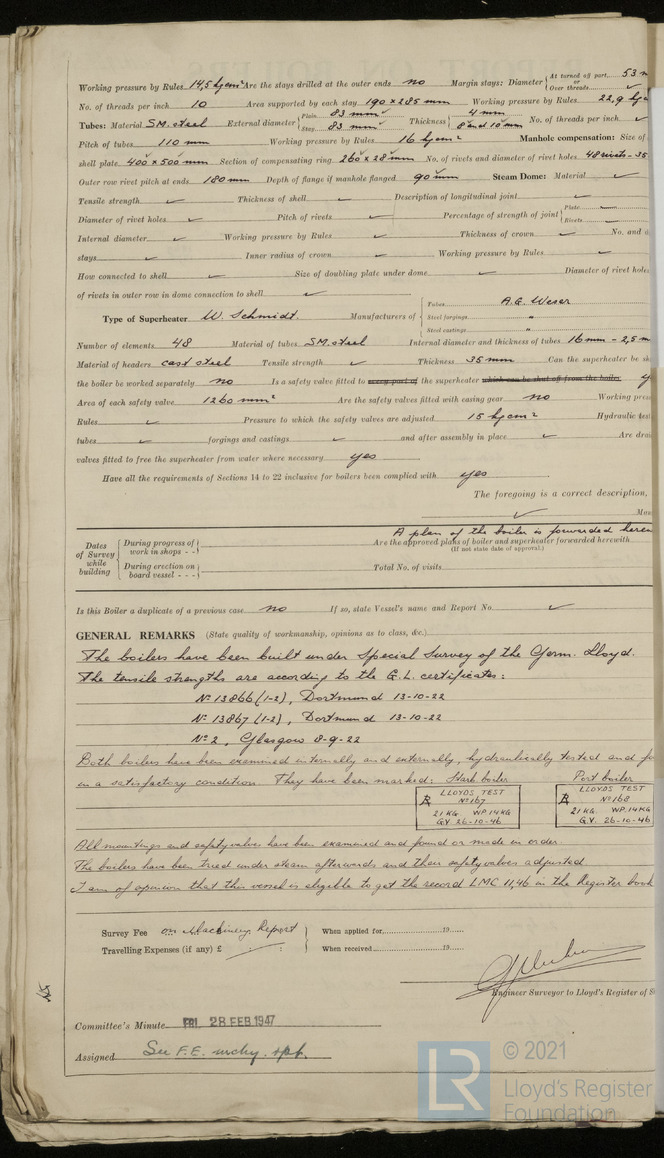 Working pressure by Rules 14,5 kg/cm² Are the stays drilled at the outer ends no Margin stays: Diameter { At turned off part, 53 m or Over threads ✓
No. of threads per inch 10 Area supported by each stay 190 x 285 mm Working pressure by Rules 22,9 kg/c
Tubes: Material S.M. steel External diameter { Plain 83 mm Stay 83 mm Thickness { 4 mm 8 and 10 mm No. of threads per inch ✓
Pitch of tubes 110 mm Working pressure by Rules 16 kg/cm² Manhole compensation: Size of
shell plate 400 x 500 mm Section of compensating ring 260 x 28 mm No. of rivets and diameter of rivet holes 48 rivets - 35
Outer row rivet pitch at ends 180 mm Depth of flange if manhole flanged 90 mm Steam Dome: Material ✓
Tensile strength ✓ Thickness of shell ✓ Description of longitudinal joint ✓
Diameter of rivet holes ✓ Pitch of rivets ✓ Percentage of strength of joint { Plate ✓ Rivets ✓
Internal diameter ✓ Working pressure by Rules ✓ Thickness of crown ✓ No. and d
stays ✓ Inner radius of crown ✓ Working pressure by Rules ✓
How connected to shell ✓ Size of doubling plate under dome ✓ Diameter of rivet holes
of rivets in outer row in dome connection to shell ✓
Type of Superheater W. Schmidt. Manufacturers of { Tubes A.G. Weser Steel forgings " Steel castings "
Number of elements 48 Material of tubes S.M. steel Internal diameter and thickness of tubes 16 mm - 2,5 m
Material of headers cast steel Tensile strength ✓ Thickness 35 mm Can the superheater be sh
the boiler be worked separately no Is a safety valve fitted to every part of the superheater which can be shut off from the boiler y
Area of each safety valve 1260 mm² Are the safety valves fitted with easing gear no Working pres
Rules ✓ Pressure to which the safety valves are adjusted 15 kg/cm² Hydraulic test
tubes ✓ forgings and castings ✓ and after assembly in place ✓ Are drai
valves fitted to free the superheater from water where necessary yes
Have all the requirements of Sections 14 to 22 inclusive for boilers been complied with yes
The foregoing is a correct description,
✓ Man
A plan of the boiler is forwarded herew
Dates of Survey while building { During progress of work in shops - - } Are the approved plans of boiler and superheater forwarded herewith
(If not state date of approval.)
During erection on board vessel - - - } Total No. of visits
Is this Boiler a duplicate of a previous case no If so, state Vessel's name and Report No. ✓
GENERAL REMARKS (State quality of workmanship, opinions as to class, &c.)
The boilers have been built under Special Survey of the Germ. Lloyd.
The tensile strengths are according to the G.L. certificates:
No 13866 (1-2), Dortmund 13-10-22
No 13867 (1-2), Dortmund 13-10-22
No 2, Glasgow 8-9-22
Both boilers have been examined internally and externally, hydraulically tested and fo
in a satisfactory condition. They have been marked: Starb boiler Port boiler
LLOYDS TEST No 167 21 KG. WP. 14 KG G.V. 26-10-46
LLOYDS TEST No 168 21 KG. WP. 14 KG G.V. 26-10-46
All mountings and safety valves have been examined and found or made in order.
The boilers have been tried under steam afterwards and their safety valves adjusted.
I am of opinion that this vessel is eligible to get the record LMC 11,46 in the Register book
Survey Fee on Machinery Report When applied for 19
Travelling Expenses (if any) £ : : When received 19
Engineer Surveyor to Lloyd's Register of S
Committee's Minute FRI. 28 FEB 1947
Assigned See F.E. mchy. rpt.
LR © 2021
Lloyd's Register
Foundation